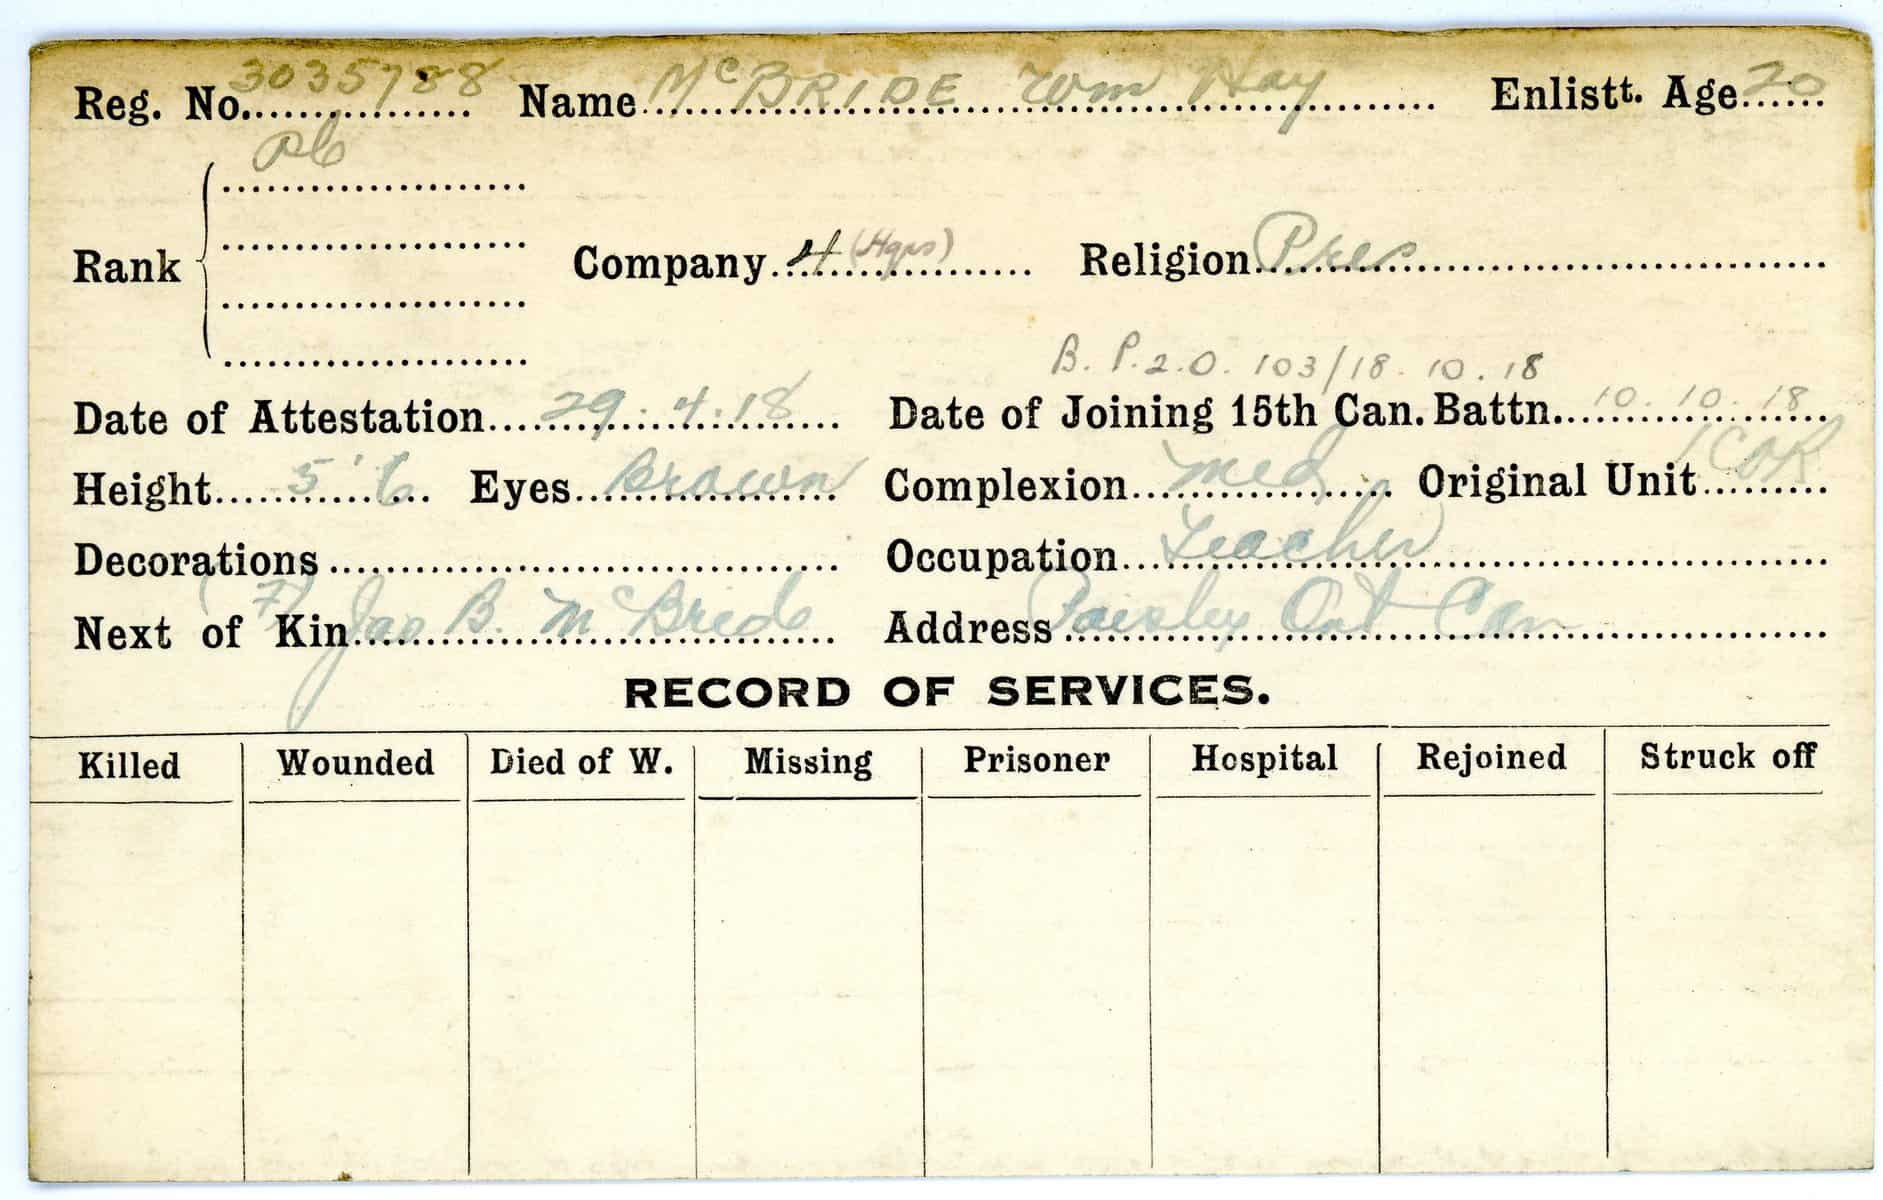 Reg. No. 3035788 Name McBRIDE Wm Hay Enlistt. Age 20
Pte
Rank Company 4 (Hqrs) Religion Pres
B. P.2.O. 103/18.10.18
Date of Attestation 29.4.18 Date of Joining 15th Can. Battn. 10.10.18
Height 5'6 Eyes Brown Complexion Med Original Unit 1COR
Decorations Occupation Teacher
Next of Kin (F) Jas B. McBride Address Paisley Ont Can
RECORD OF SERVICES.
Killed Wounded Died of W. Missing Prisoner Hospital Rejoined Struck off